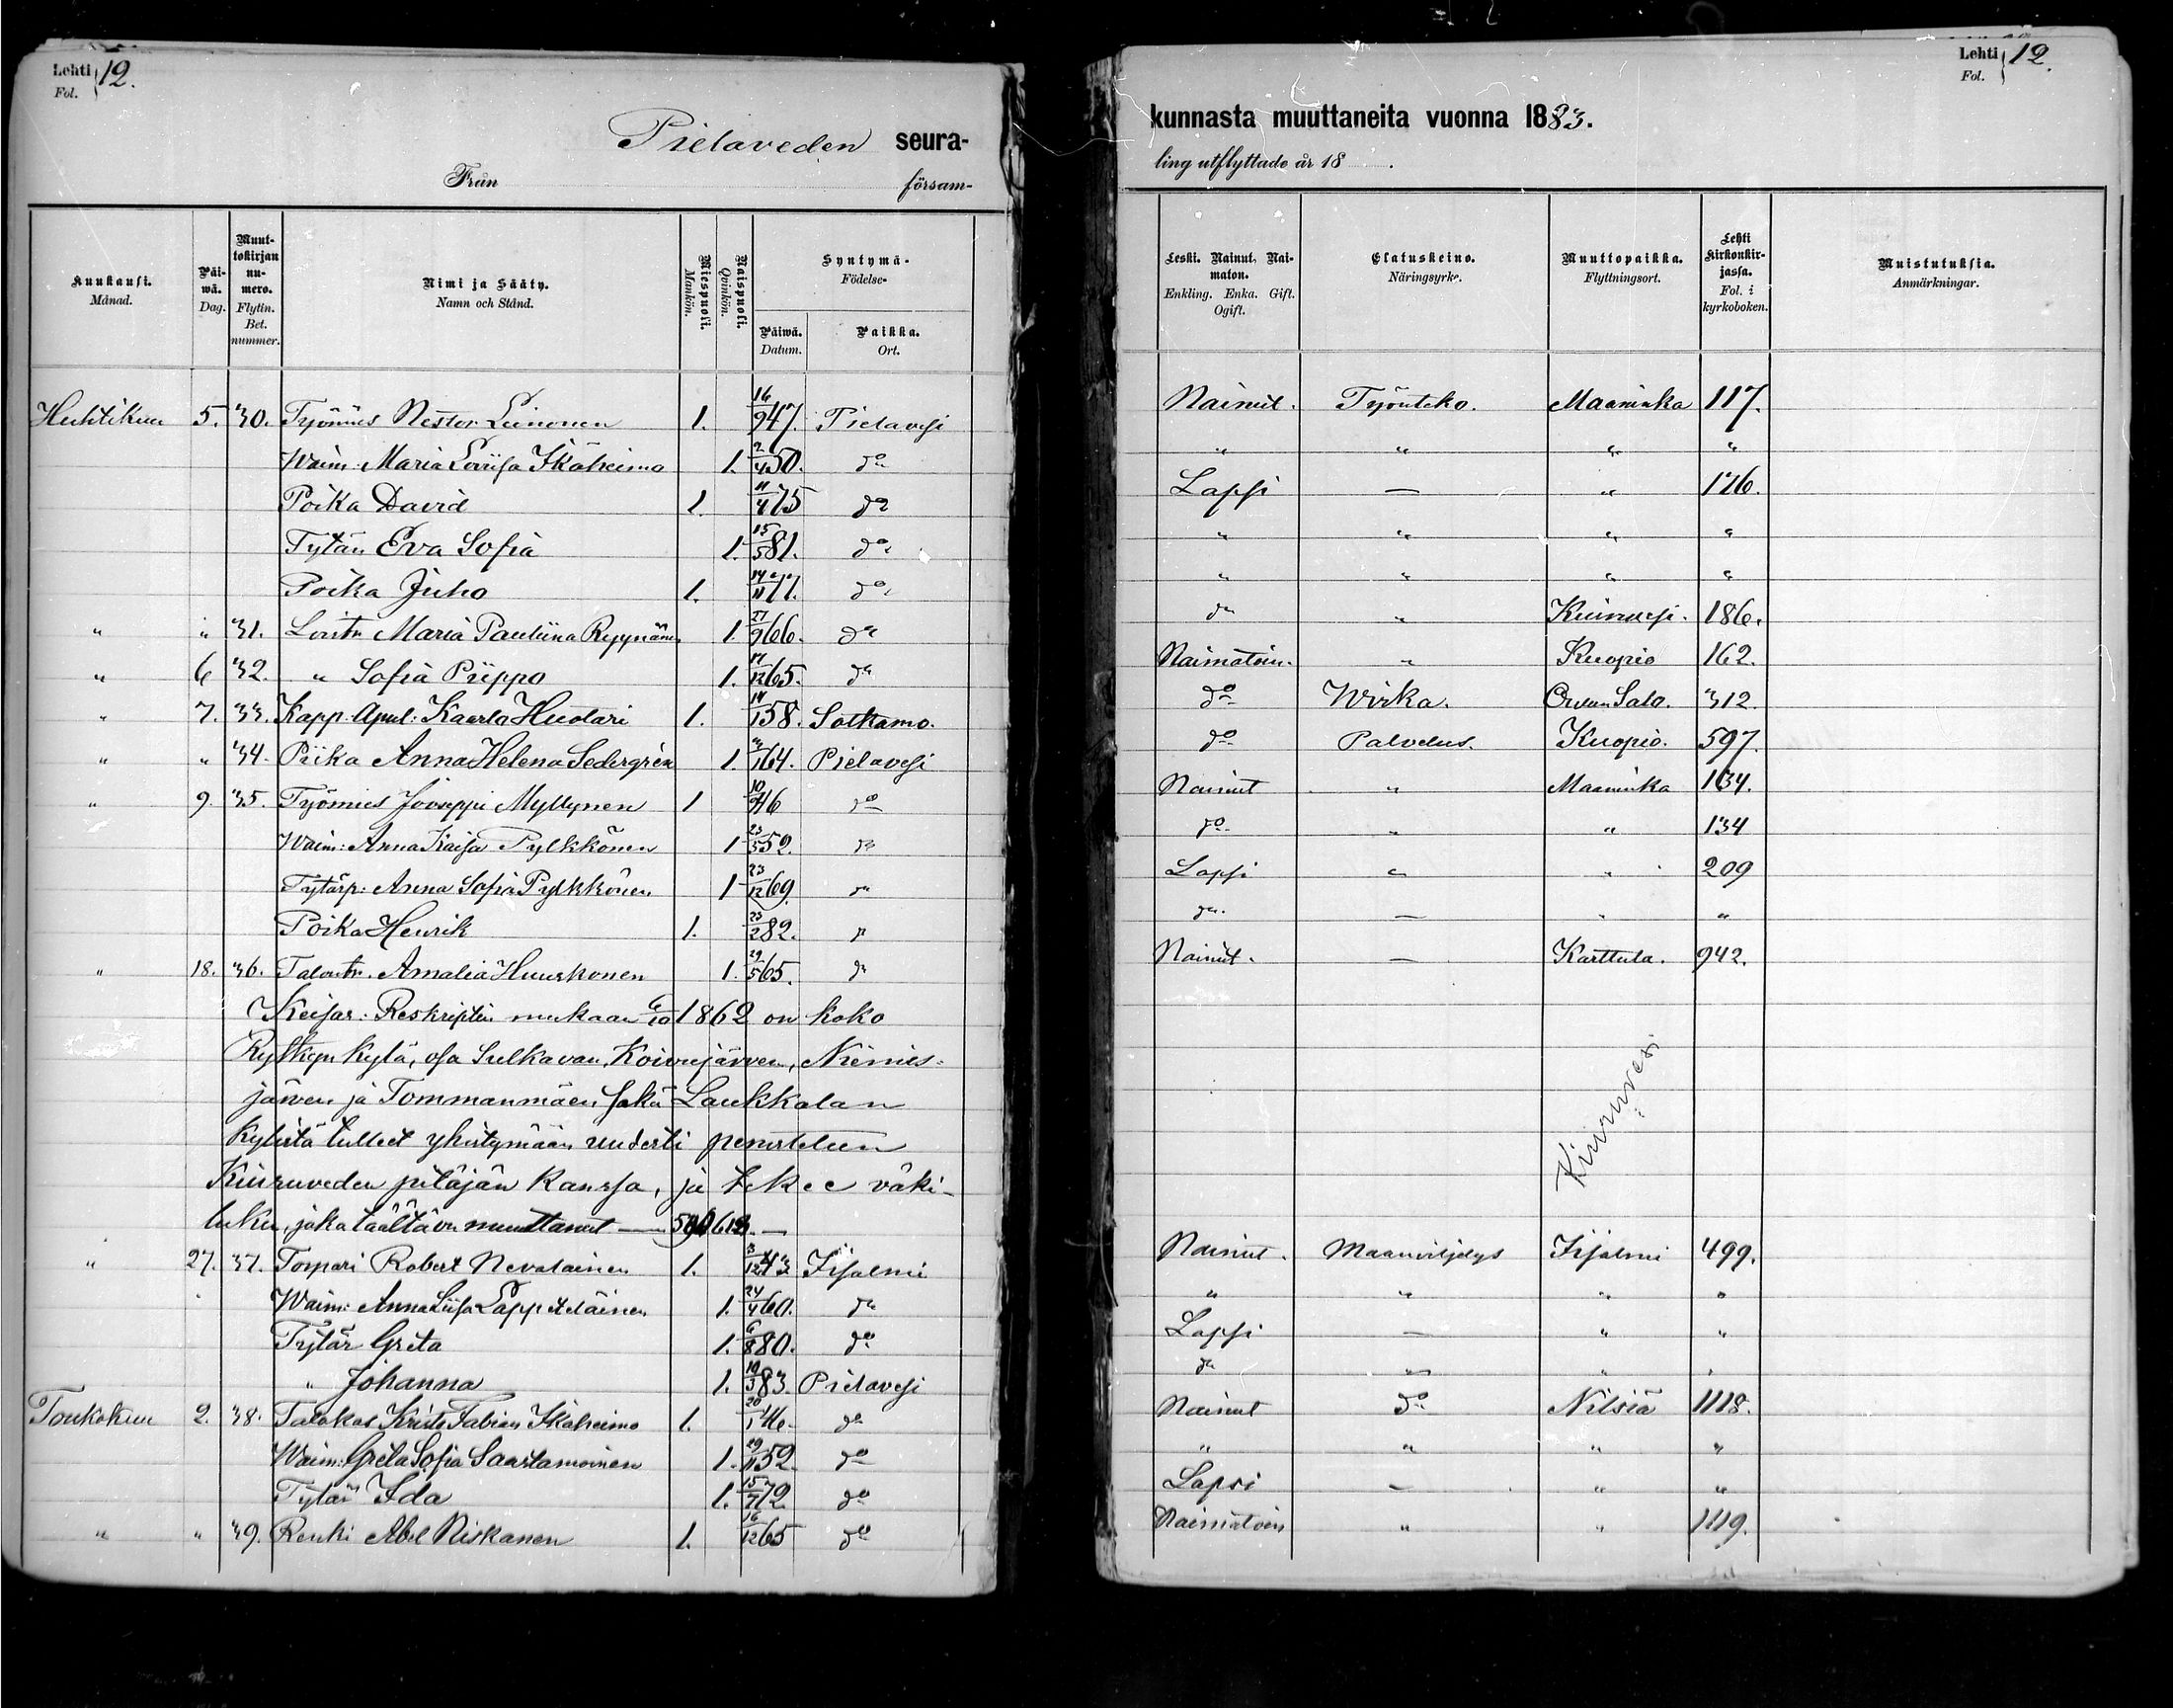 Lehti 12.
Fol.
Pielaveden seura-
Från försam-
Kuukausi. Månad.
Päiwä. Dag.
Muuttokirjan numero. Flyttn. Bet. nummer.
Nimi ja Sääty. Namn och Stånd.
Miespuoli. Mankön.
Naispuoli. Qvinkön.
Syntymä- Födelse-
Päiwä. Datum.
Paikka. Ort.
Huhtikuu 5. 30. Työmies Nestor Leinonen 1. 16/9 47. Pielavesi
Waim: Maria Lovisa Ikäheimo 1. 2/4 50. do
Poika David 1. 11/4 75 do
Tytär Eva Sofia 1. 15/5 81. do
Poika Juho 1. 14/11 77. do
" " 31. Loistr Maria Pauliina Ryynänen 1. 27/9 66. do
" 6 32. " Sofia Piippo 1. 17/12 65. do
" 7. 33. Kapp. Apul: Kaarlo Huotari 1. 14/1 58. Sotkamo.
" " 34. Piika Anna Helena Sedergrén 1. 3/1 64. Pielavesi
" 9. 35. Työmies Jooseppi Myllynen 1 10/9 46 do
Waim: Anna Kaisa Pylkkönen 1 23/5 52. do
Tytärp: Anna Sofia Pylkkönen 1 23/12 69. do
Poika Henrik 1. 23/2 82. do
" 18. 36. Talontr. Amalia Huuskonen 1. 29/5 65. do
Keisar: Reskriptin mukaan 6/10 1862 on koko
Rytkyn kylä, osa Sulkavan, Koivujärven, Niemis-
järven ja Tommanmäen sekä Laukkalan
kylistä tulleet yhistymään uudesti perustetun
Kiuruveden pitäjän kanssa, ja tekee väki-
luku, joka täältä on muuttanut
" 27. 37. Torpari Robert Nevalainen 1. 3/12 43 Iisalmi
Waim: Anna Liisa Lappeteläinen 1. 24/4 60. do
Tytär Greta 1. 6/8 80. do
" Johanna 1. 10/3 83. Pielavesi
Toukokuu 2. 38. Talokas Kristo Fabian Ikäheimo 1. 20/1 46. do
Waim: Greta Sofia Saastamoinen 1. 29/11 52. do
Tytär Ida 1. 15/7 72. do
" " 39. Renki Abel Niskanen 1. 16/12 65 do
Lehti 12.
Fol.
kunnasta muuttaneita vuonna 1883.
ling utflyttade år 18 .
Leski. Nainut. Naimaton. Enkling. Enka. Gift. Ogift.
Elatuskeino. Näringsyrke.
Muuttopaikka. Flyttningsort.
Lehti kirkonkirjassa. Fol. i kyrkoboken.
Muistutuksia. Anmärkningar.
Nainut. Työnteko. Maaninka 117.
" " " "
Lapsi — " 126.
" " " "
" " " "
do " Kiuruvesi. 186.
Naimatoin. " Kuopio 162.
do Wirka. 312.
do Palvelus. Kuopio. 597.
Nainut " Maaninka 134.
do " " 134
Lapsi " " 209
do. — " "
Nainut. — Karttula. 942.
Kiuruvesi
Nainut. Maanviljelys Iisalmi 499.
" " " "
Lapsi — " "
do " " "
Nainut do Nilsiä 1118.
" " " "
Lapsi — " "
Naimatoin " " 1119.